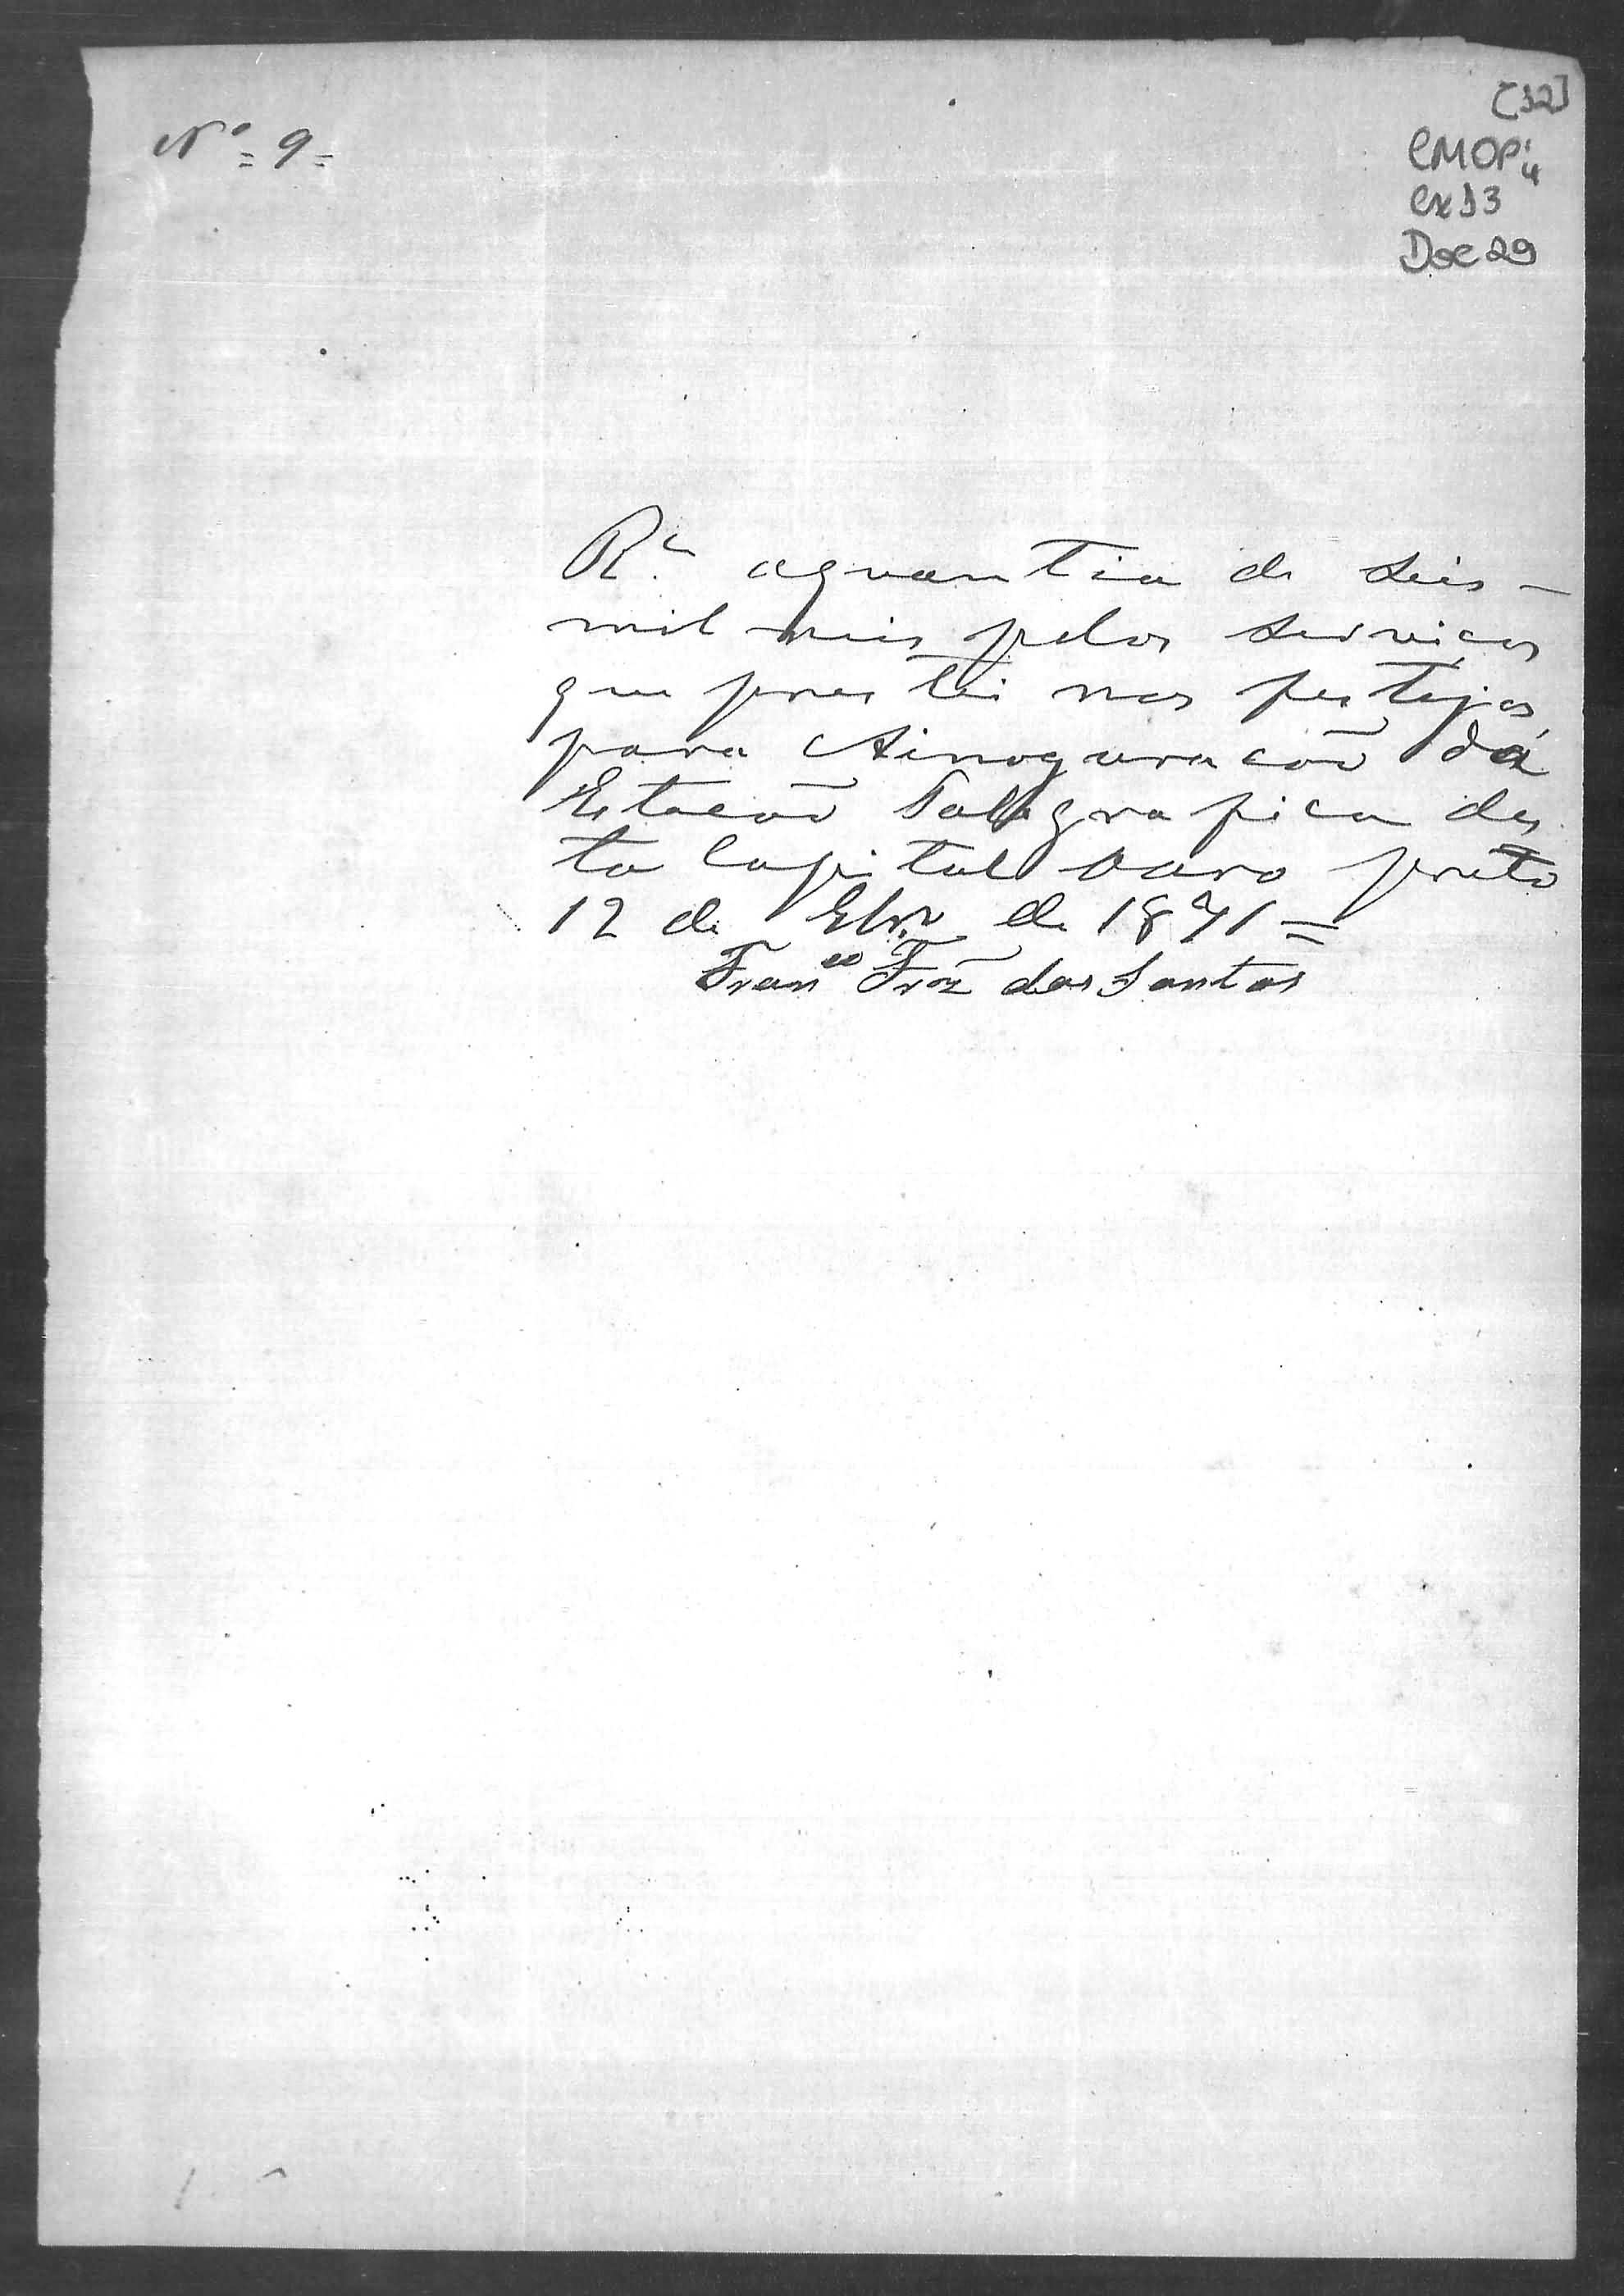 [32]
Nº = 9 =
CMOP
Cx 13
Doc 29
Rc. aquantia de seis -
mil reis pelos serviços
que prestei nos festejos
para Ainoguracoã da
Estacoã Telegrafica des
ta Capital Ouro preto
12 de de 1871 =
Franco dos Santos